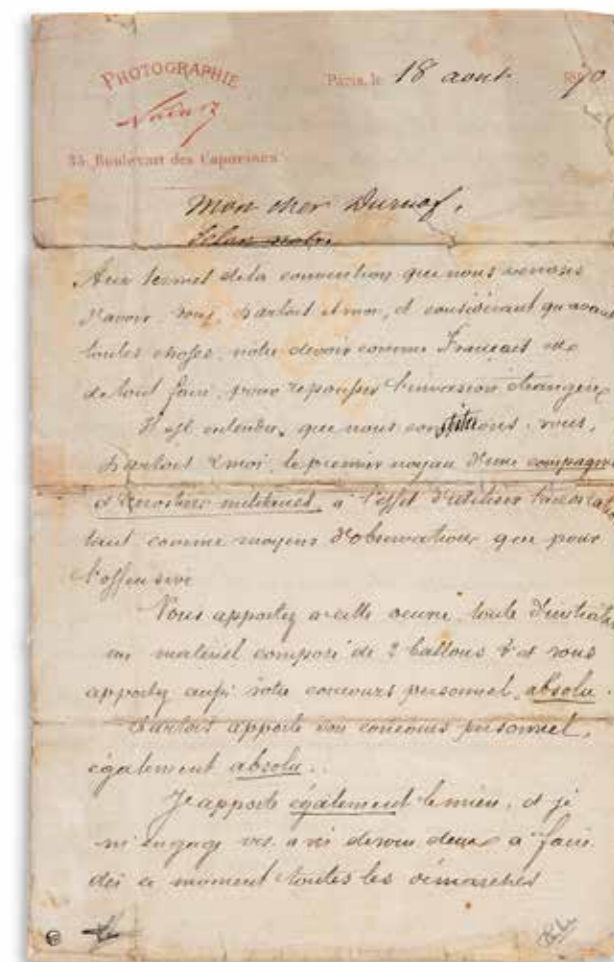 PHOTOGRAPHIE
Nadar
35, Boulevart des Capucines
Paris, le 18 aout 1870
Mon cher Duruof,
Selon notre
Aux termes de la convention que nous venons
d'avoir, vous, Dartois et moi, et considérant qu'avant
toutes choses, notre devoir comme Français est
de tout faire pour repousser l'invasion étrangère
Il est entendu, que nous constituons, vous,
Dartois & moi, le premier noyau d'une compagnie
d'aérostiers militaires, à l'effet d'utiliser
tant comme moyens d'observations que pour
l'offensive
Vous apportez à cette oeuvre toute
un matériel composé de 2 ballons & vous
apportez aussi votre concours personnel, absolu.
Dartois apporte son concours personnel,
également absolu.
J'apporte également le mien, et je
m'engage vis à vis de vous deux à faire
dès ce moment toutes les démarches